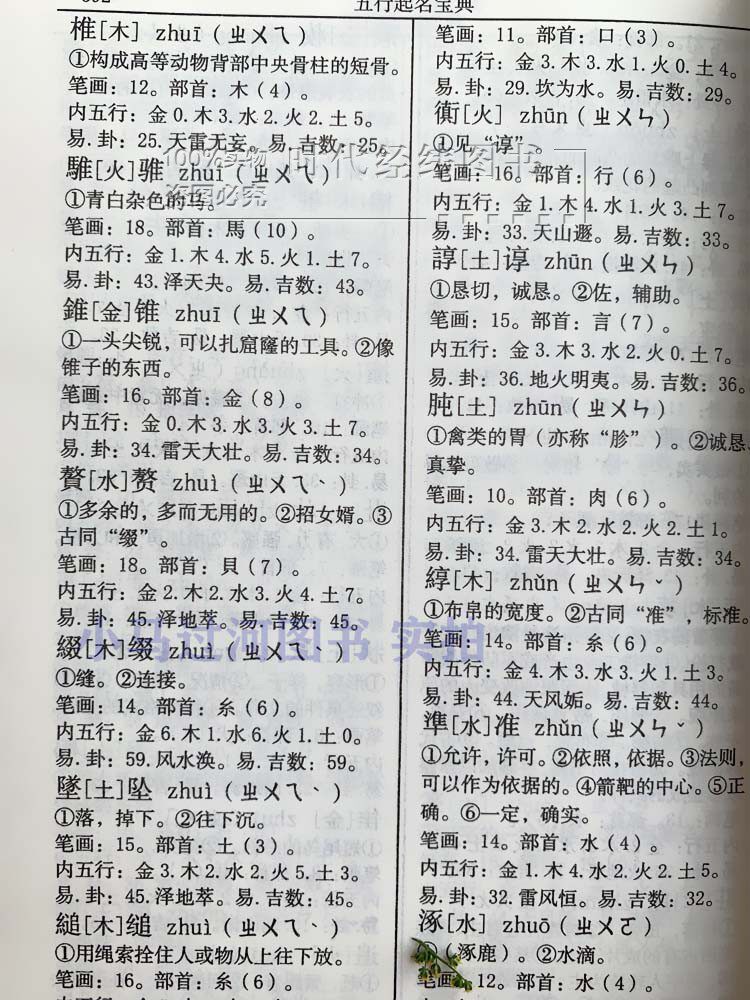 五行起名宝典
椎[木] zhuī（ㄓㄨㄟ）
①构成高等动物背部中央骨柱的短骨。
笔画：12。部首：木（4）。
内五行：金0.木3.水2.火2.土5。
易.卦：25.天雷无妄。易.吉数：25。
騅[火]骓 zhuī（ㄓㄨㄟ）
①青白杂色的马。
笔画：18。部首：馬（10）。
内五行：金1.木4.水5.火1.土7。
易.卦：43.泽天夬。易.吉数：43。
錐[金]锥 zhuī（ㄓㄨㄟ）
①一头尖锐，可以扎窟窿的工具。②像
锥子的东西。
笔画：16。部首：金（8）。
内五行：金0.木3.水3.火3.土7。
易.卦：34.雷天大壮。易.吉数：34。
贅[水]赘 zhuì（ㄓㄨㄟˋ）
①多余的，多而无用的。②招女婿。③
古同“缀”。
笔画：18。部首：貝（7）。
内五行：金2.木2.水3.火4.土7。
易.卦：45.泽地萃。易.吉数：45。
綴[木]缀 zhuì（ㄓㄨㄟˋ）
①缝。②连接。
笔画：14。部首：糸（6）。
内五行：金6.木1.水6.火1.土0。
易.卦：59.风水涣。易.吉数：59。
墜[土]坠 zhuì（ㄓㄨㄟˋ）
①落，掉下。②往下沉。
笔画：15。部首：土（3）。
内五行：金3.木2.水2.火5.土3。
易.卦：45.泽地萃。易.吉数：45。
縋[木]缒 zhuì（ㄓㄨㄟˋ）
①用绳索拴住人或物从上往下放。
笔画：16。部首：糸（6）。
笔画：11。部首：口（3）。
内五行：金3.木3.水1.火0.土4。
易.卦：29.坎为水。易.吉数：29。
[火] zhūn（ㄓㄨㄣ）
①见“谆”。
笔画：16。部首：行（6）。
内五行：金1.木4.水1.火3.土7。
易.卦：33.天山遯。易.吉数：33。
諄[土]谆 zhūn（ㄓㄨㄣ）
①恳切，诚恳。②佐，辅助。
笔画：15。部首：言（7）。
内五行：金3.木3.水2.火0.土7。
易.卦：36.地火明夷。易.吉数：36。
肫[土] zhūn（ㄓㄨㄣ）
①禽类的胃（亦称“胗”）。②诚恳
真挚。
笔画：10。部首：肉（6）。
内五行：金3.木2.水2.火2.土1。
易.卦：34.雷天大壮。易.吉数：34。
綧[木] zhǔn（ㄓㄨㄣˇ）
①布帛的宽度。②古同“准”，标准。
笔画：14。部首：糸（6）。
内五行：金4.木3.水3.火1.土3。
易.卦：44.天风姤。易.吉数：44。
準[水]准 zhǔn（ㄓㄨㄣˇ）
①允许，许可。②依照，依据。③法则，
可以作为依据的。④箭靶的中心。⑤正
确。⑥一定，确实。
笔画：14。部首：水（4）。
内五行：金1.木4.水2.火2.土5。
易.卦：32.雷风恒。易.吉数：32。
涿[水] zhuō（ㄓㄨㄛ）
①（涿鹿）。②水滴。
笔画：12。部首：水（4）。
100%实物
盗图必究
时代经纬图书
小马过河图书 实拍